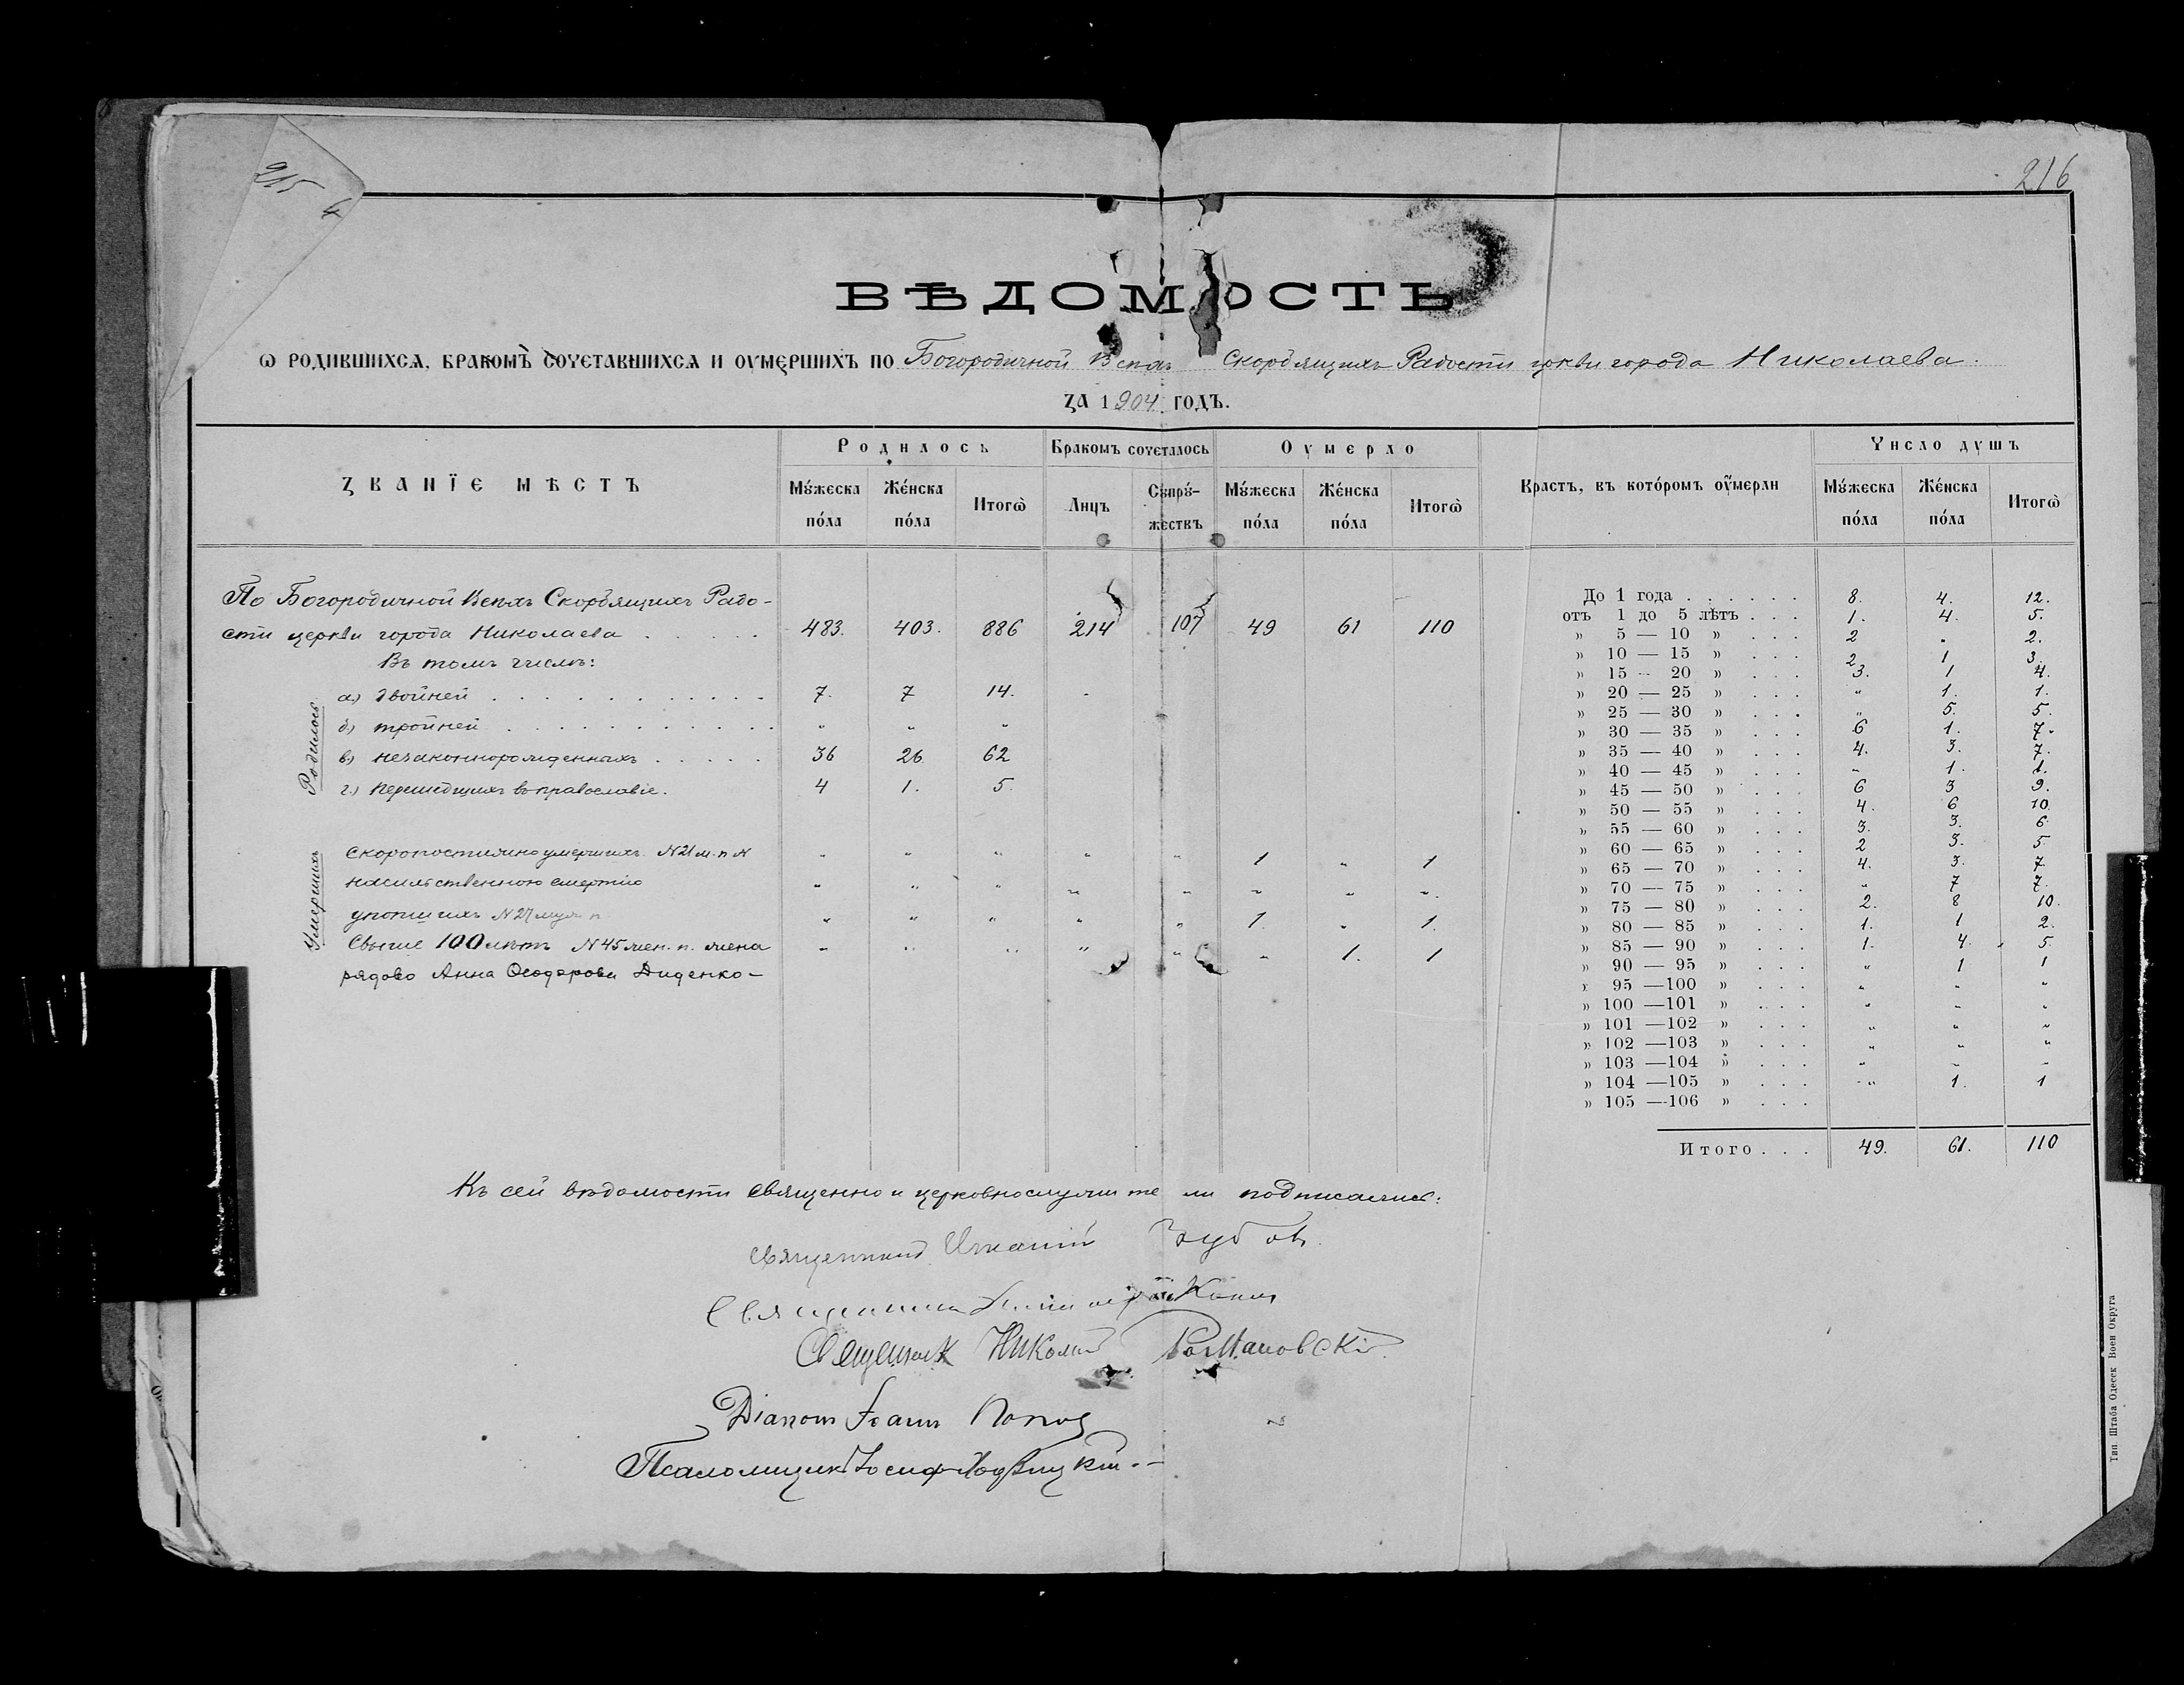 215
216
ВѢДОМОСТЬ
Ѡ РОДИВШИХСѦ, БРАКОМЪ СОЧЕТАВШИХСѦ И ОУМЕРШИХЪ ПО Богородичной Всѣхъ Скорбящихъ Радости цркви города Николаева.
ЗА 1904 ГОДЪ.
ЗВАНЇЕ МѢСТЪ
Родилось
Бракомъ сочеталось
Оумерло
Возрастъ, въ кото́ромъ оумерли
Число душъ
Му́жеска по́ла
Же́нска по́ла
Итогѡ
Лицъ
Супру́-жествъ
Му́жеска по́ла
Же́нска по́ла
Итогѡ
Му́жеска по́ла
Же́нска по́ла
Итогѡ
По Богородичной Всѣхъ Скорбящихъ Радо-
сти церкви города Николаева . . . . . 483. 403. 886 214 107 49 61 110
Въ томъ числѣ:
Родилось
а.) двойней . . . . . . . . . . . 7. 7 14.
б.) тройней . . . . . . . . . . . " " "
в.) незаконнорожденныхъ . . . . . 36 26. 62
г.) перешедшихъ въ православіе. 4 1. 5.
Умершихъ
Скоропостижно умершихъ. N 21 м. п. " " " " " 1 " 1
насильственною смертію " " " " " " " "
утопшихъ N 27 муж. п. " " " " " 1. " 1.
Свыше 100 лѣтъ N 45 жен. п. жена " " " " " " 1. 1
рядово Анна Ѳеодорова Диденко –
До 1 года . . . . . . 8. 4. 12.
отъ 1 до 5 лѣтъ . . . 1. 4. 5.
» 5 — 10 » . . . 2 " 2.
» 10 — 15 » . . . 2 1 3.
» 15 — 20 » . . . 3. 1 4.
» 20 — 25 » . . . " 1. 1.
» 25 — 30 » . . . " 5. 5.
» 30 — 35 » . . . 6 1. 7.
» 35 — 40 » . . . 4. 3. 7.
» 40 — 45 » . . . " 1. 1.
» 45 — 50 » . . . 6 3 9.
» 50 — 55 » . . . 4. 6 10.
» 55 — 60 » . . . 3. 3. 6.
» 60 — 65 » . . . 2 3. 5
» 65 — 70 » . . . 4. 3. 7.
» 70 — 75 » . . . " 7 7.
» 75 — 80 » . . . 2. 8 10.
» 80 — 85 » . . . 1. 1 2.
» 85 — 90 » . . . 1. 4. 5
» 90 — 95 » . . . " 1 1
» 95 —100 » . . . " " "
» 100 —101 » . . . " " "
» 101 —102 » . . . " " "
» 102 —103 » . . . " " "
» 103 —104 » . . . " " "
» 104 —105 » . . . " 1. 1
» 105 —106 » . . .
Итого . . . 49. 61. 110
Къ сей вѣдомости священно и церковнослужители подписались:
Священникъ Зубовъ.
Священникъ
Священникъ Николай Романовскій.
Діаконъ Іоаннъ Попов
Псаломщикъ Іосифъ
Тип. Штаба Одесск. Воен Округа